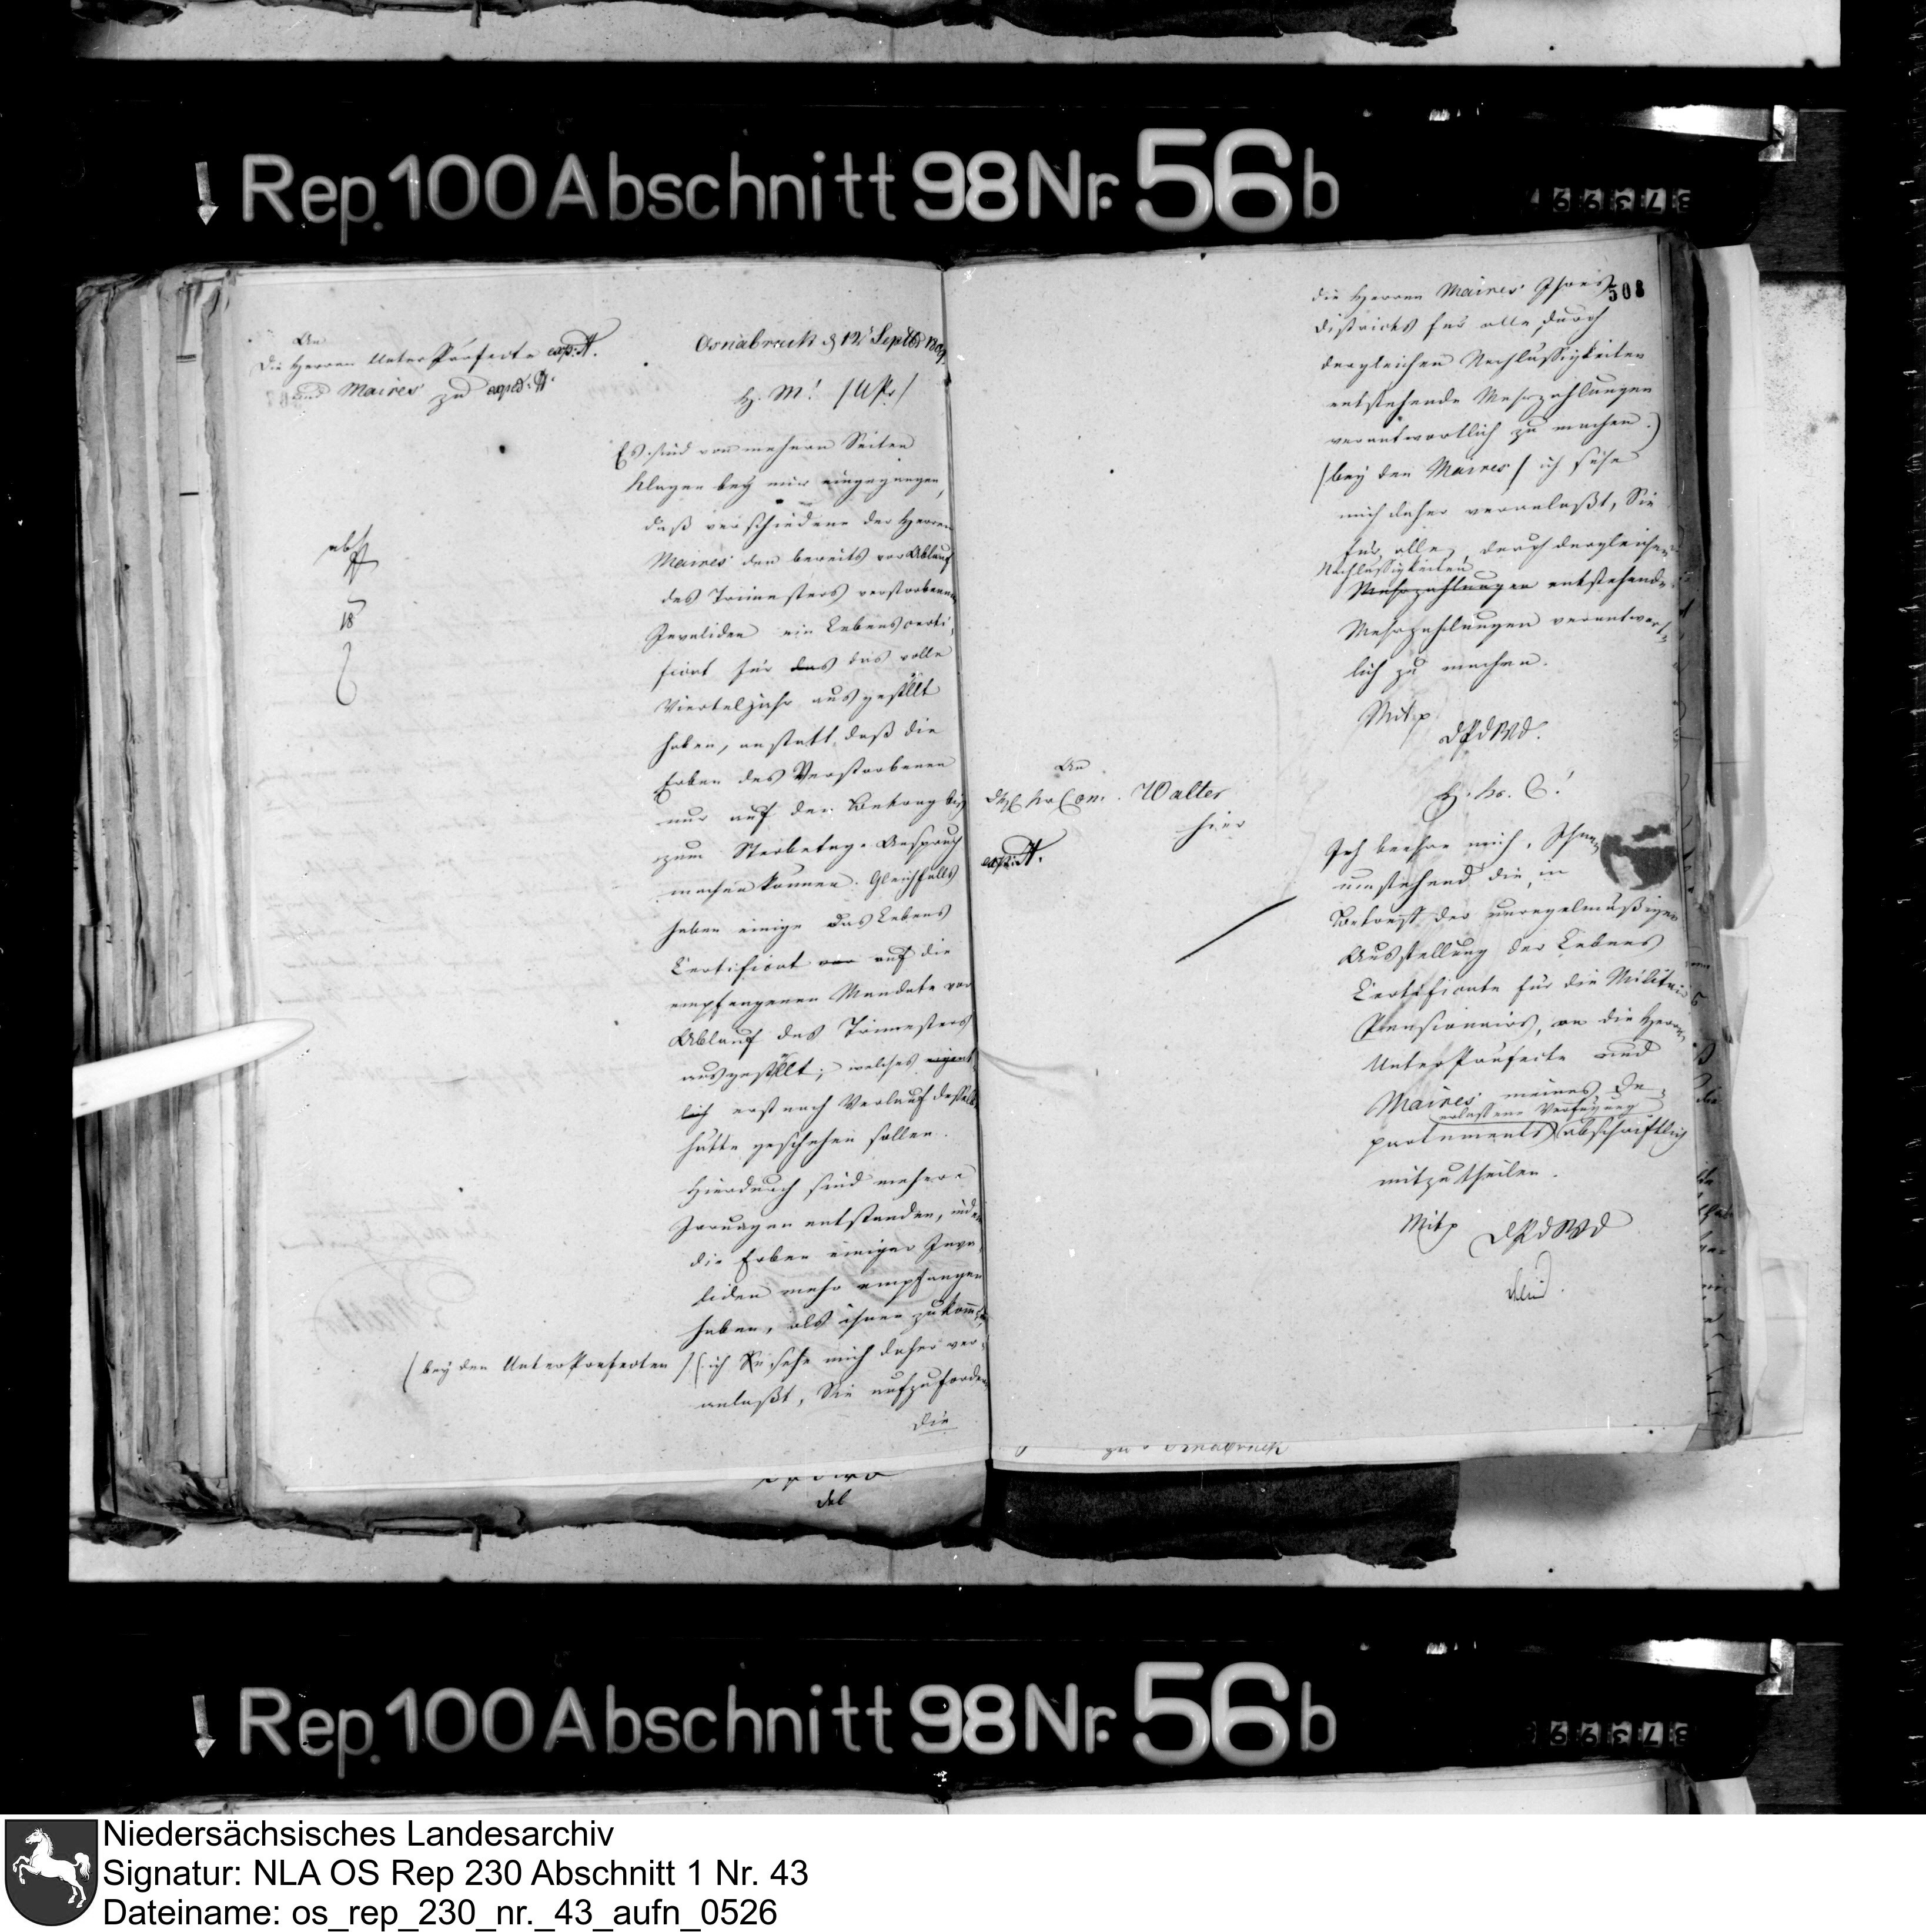 Rep. 100 Abschnitt 98 Nr. 56b
An
die Herren UnterPräfecte exp. A.
und Maires zu exped. A.
Osnabrück d 12t Septbr 1809
H. M! /UPr/
Es sind von mehrern Seiten
Klagen bey mir eingegangen,
daß verschiedene der Herren
Maires den bereits vor Ablauf
des Trimesters verstorbenen
Invaliden ein Lebenscerti-
ficat für das das volle
Vierteljahr ausgestellt
haben, anstatt daß die
Erben des Verstorbenen
nur auf den Betrag bis
zum Sterbetage Anspruch
machen können. Gleichfalls
haben einige das Lebens
Certificat vor auf die
empfangenen Mandate vor
Ablauf des Trimesters
ausgestellt; welches eigent-
lich erst nach Verlauf desselb.
hätte geschehen sollen.
Hierdurch sind mehrere
Irrungen entstanden, indem
die Erben einiger Inva-
liden mehr empfangen
haben, als ihnen zukommt,
(bey den UnterPräfecten) (ich sehe mich daher ver-
anlaßt, Sie aufzufordern
die
508
die Herren Maires Ihres
Districts für alle durch
dergleichen Nachlässigkeiten
entstehende Mehrzahlungen
verantwortlich zu machen.)
/bey den Maires/ ich sehe
mich daher veranlaßt, Sie
für alle, durch dergleichen
Nachlässigkeiten
Mehrzahlungen entstehende
Mehrzahlungen verantwort-
lich zu machen.
Mit p
DPdWD.
An
Walter
hier
exp. A.
H. Kr. C!
Ich beehre mich, Ihnen
umstehend die, in
Betreff der unregelmäßigen
Ausstellung der Lebens
Certificate für die Militair
Pensionairs, an die Herren
UnterPräfecte und
Maires meines De-
erlassene Verfügung
partements abschriftlich
mitzutheilen.
Mit p DPdWD
zu Osnabrück
Rep. 100 Abschnitt 98 Nr. 56b
Niedersächsisches Landesarchiv
Signatur: NLA OS Rep 230 Abschnitt 1 Nr. 43
Dateiname: os_rep_230_nr._43_aufn_0526